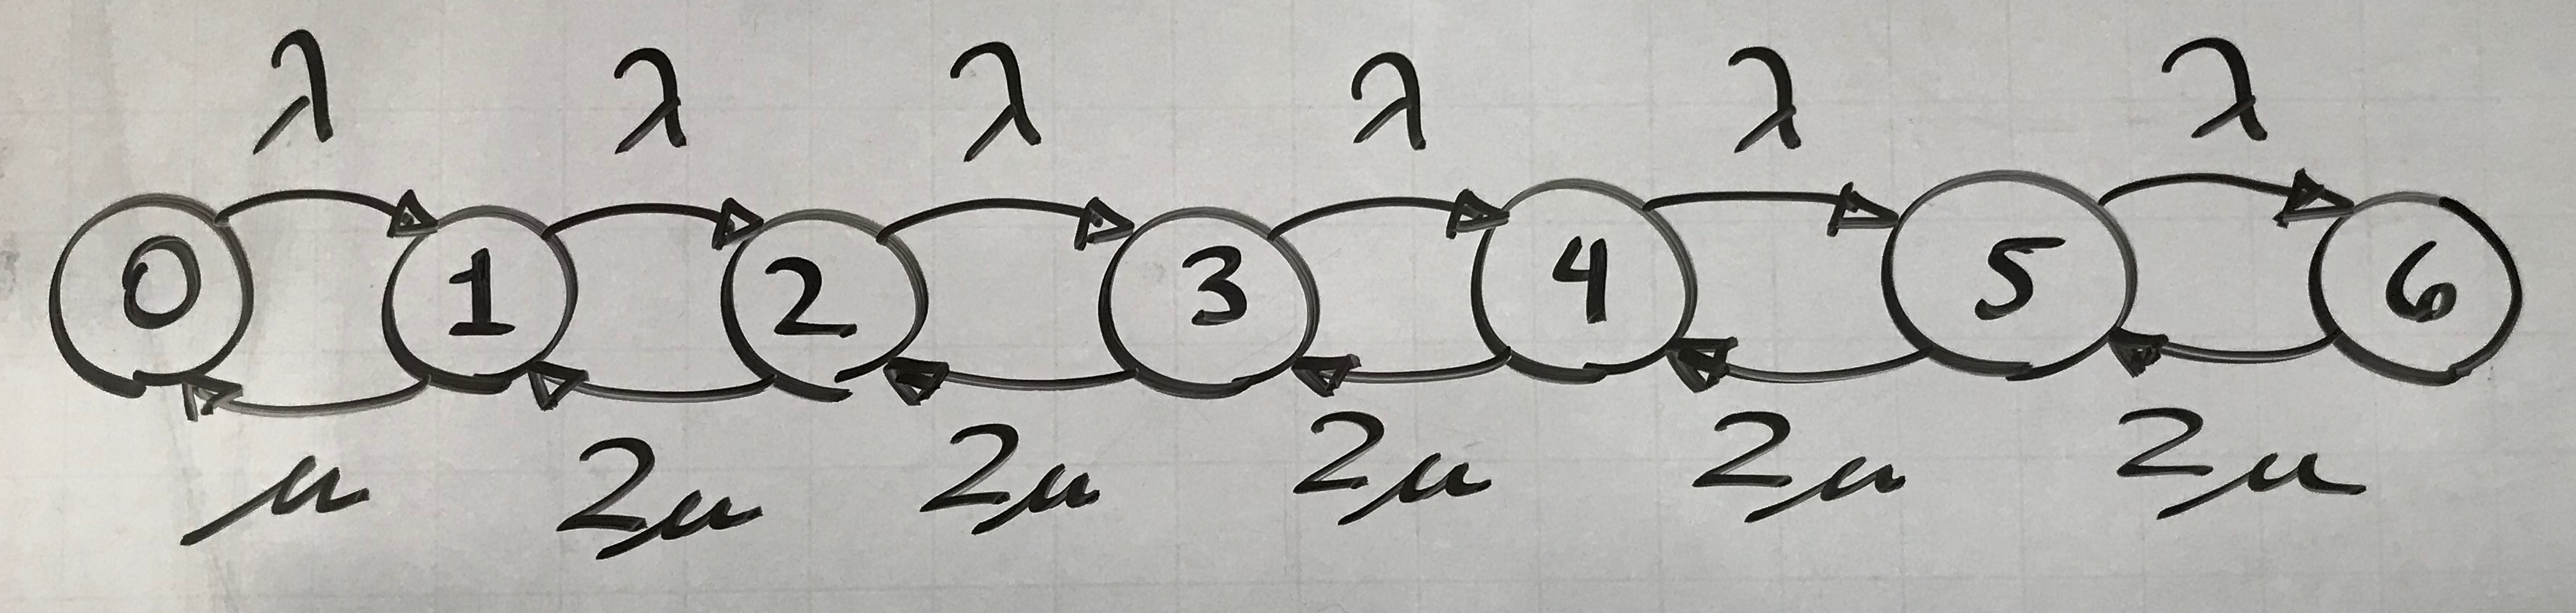 λ λ λ λ λ λ
0 1 2 3 4 5 6
μ 2μ 2μ 2μ 2μ 2μ